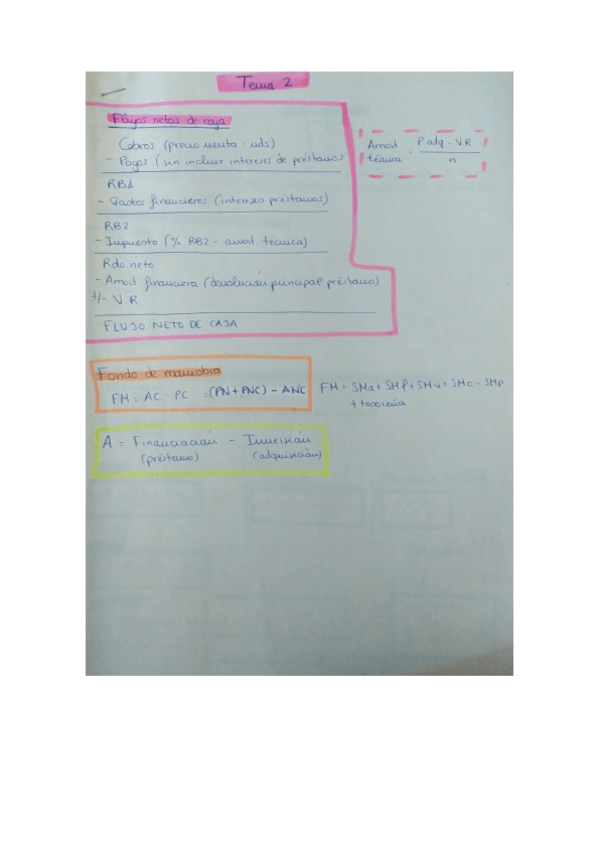 Tema 2
Flujos netos de caja
Cobros (precio venta · uds)
- Pagos (sin incluir intereses de préstamos
RB1
- Gastos financieros (intereses préstamos)
RB2
- Impuesto (% RB2 - amort. técnica)
Rdo neto
- Amort financiera (devolución principal préstamo)
+/- V.R
FLUJO NETO DE CAJA
Amort técnica = P adq - V.R / n
Fondo de maniobra
FM = AC - PC = (PN + PNC) - ANC
FM = SMa + SMf + SMv + SMc - SMp
+ tesorería
A = Financiación - Inversión
(préstamo) (adquisición)